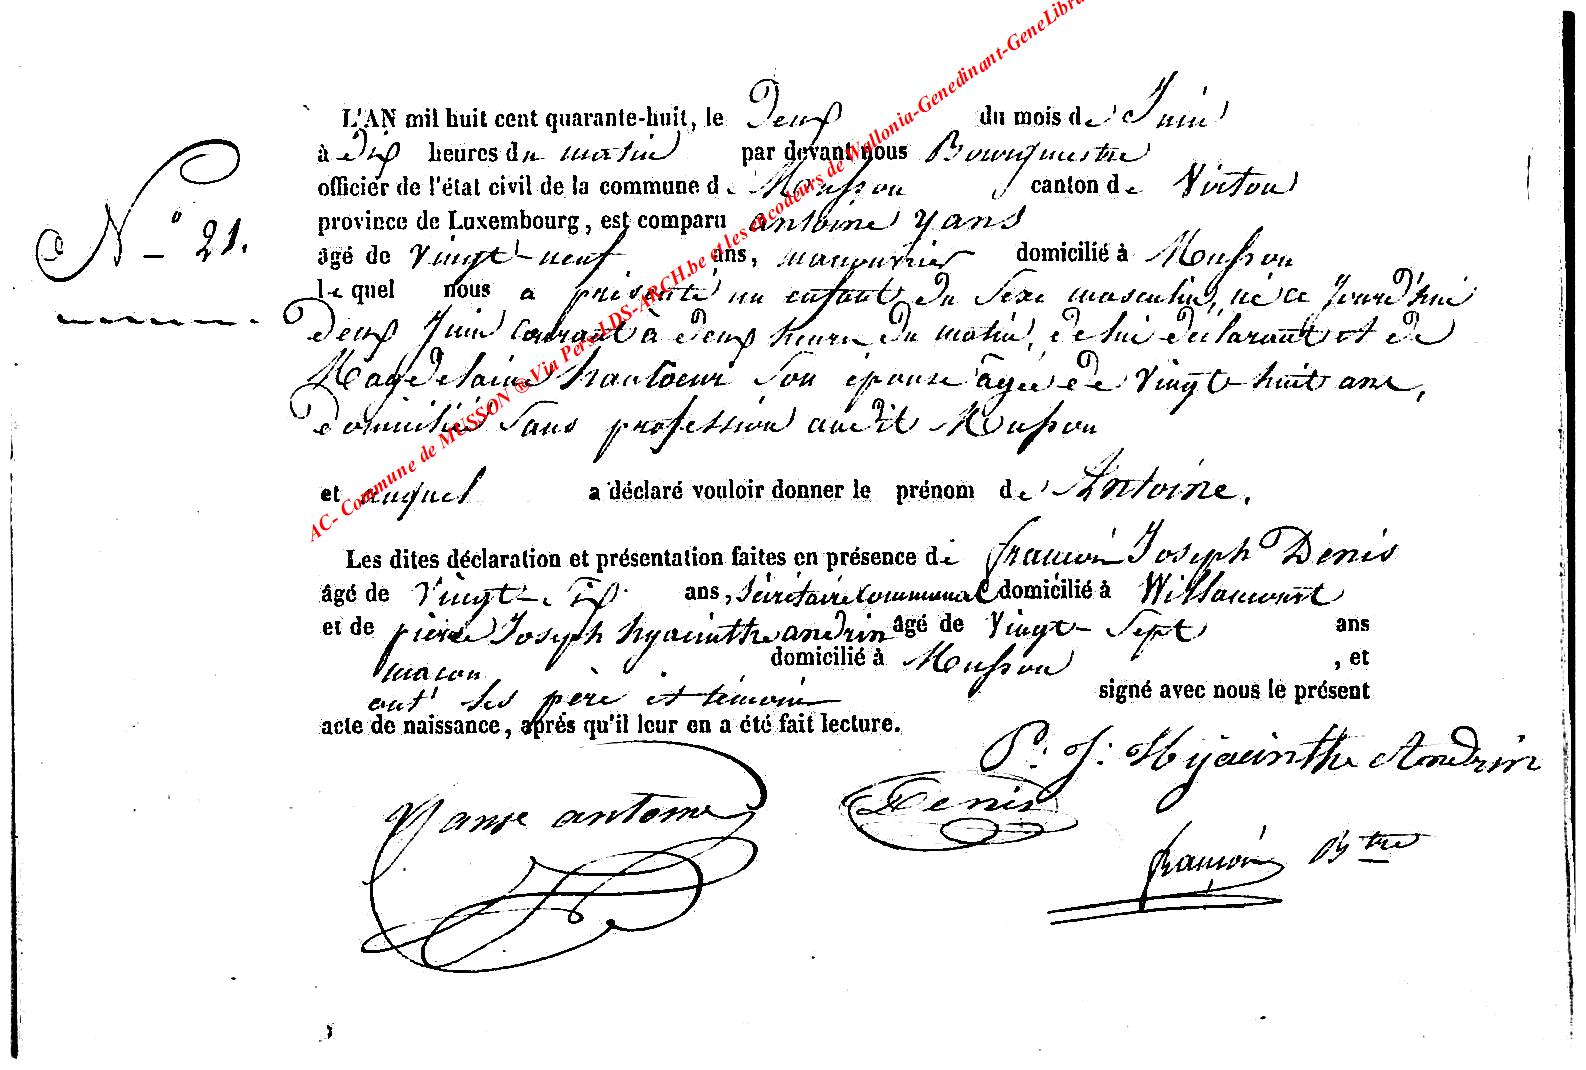 L'AN mil huit cent quarante-huit, le Deux du mois de Juin
à dix heures du matin par devant nous Bourgmestre
officier de l'état civil de la commune de Musson canton de Virton
province de Luxembourg, est comparu antoine yans
N° 21.
âgé de vingt-neuf ans, manouvrier domicilié à Musson
lequel nous a présenté un enfant du sexe masculin, né ce jourd'hui
deux Juin courant à deux heures du matin, de lui déclarant et de
Magdelaine hautoeur son épouse âgée de vingt-huit ans,
domiciliée sans profession audit Musson
et auquel a déclaré vouloir donner le prénom de Antoine.
Les dites déclaration et présentation faites en présence de françois Joseph Denis
âgé de vingt-six ans, sécrétaire communal domicilié à Willancourt
et de pierre Joseph hyacinthe andrin âgé de vingt-sept ans
macon domicilié à Musson , et
ont les père et témoins signé avec nous le présent
acte de naissance, après qu'il leur en a été fait lecture.
P. J. Hyacinthe Andrin
Yanse antoine Denis
françois Btre
AC- Commune de MUSSON ® Via Pers-LDS-ARCH.be et les encodeurs de Wallonia-Genedinant-GeneLibra